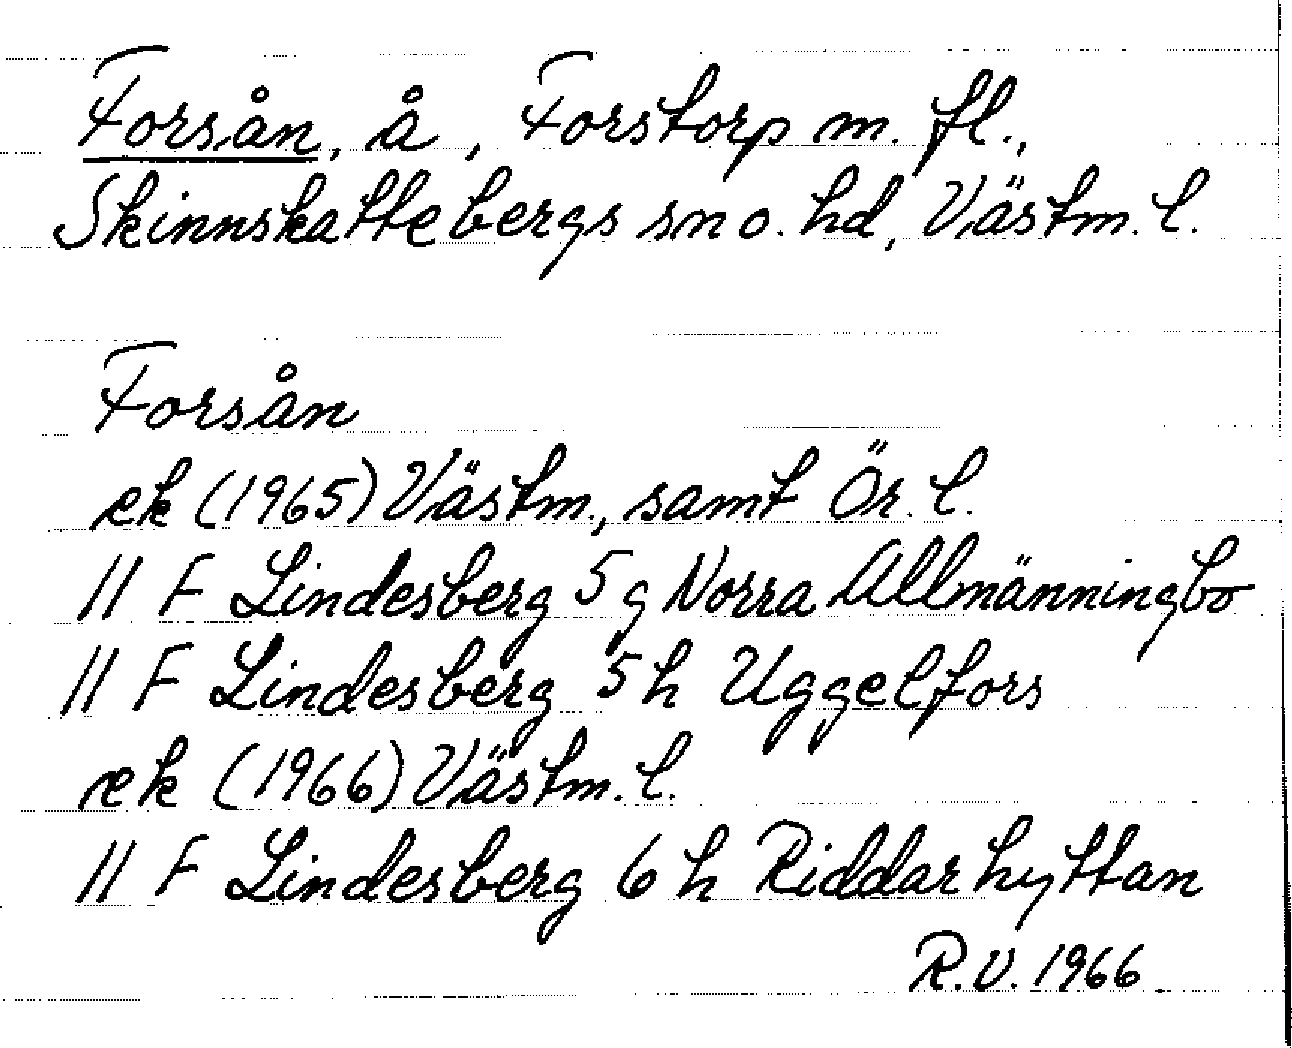 Forsån, å, Forstorp m. fl.,
Skinnskattebergs sn o. hd, Västm. l.
Forsån
ek (1965) Västm., samt Ör. l.
11 F Lindesberg 5 g Norra Allmänningbo
11 F Lindesberg 5 h Uggelfors
ek (1966) Västm. l.
11 F Lindesberg 6 h Riddarhyttan
R.V. 1966